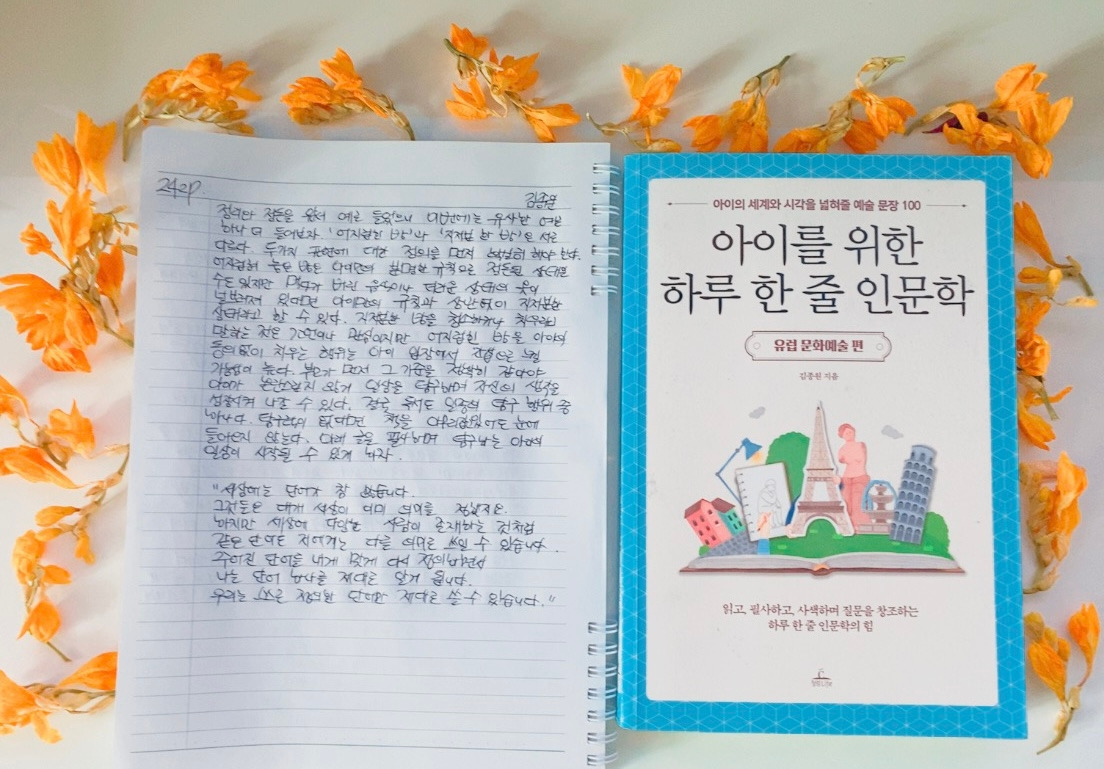 242p.
김종원
정의와 집들을 왔어 예로 들었으니 이번에는 유사한 예를
하나 더 들어보자. '어지럽힌 방'과 '지저분한 방'은 서로
다르다. 두가지 표현에 대한 정의를 먼저 확실히 해야 한다.
어지럽혀 놓은 방은 나름의 분명한 규칙으로 정돈된 상태일
수도 있지만 먹다가 버린 음식이나 더러운 상태의 옷이
널브러져 있다면 아이만의 규칙과 상관없이 지저분한
상태라고 할 수 있다. 지저분한 방을 청소하거나 치우라고
말하는 것은 당연한 관심이지만 어지럽힌 방을 아이의
동의없이 치우는 행위는 아이 입장에서 간섭으로 느낄
가능성이 높다. 부모가 먼저 그 기준을 정확히 잡아야
아이가 혼란스럽지 않게 일상을 탐구하며 자신의 생각을
성장시켜 나갈 수 있다. 결국 독서도 일종의 탐구 행위 중
하나다. 탐구력이 없다면 책을 아무리 읽어도 눈에
들어오지 않는다. 아래 글을 필사하며 탐구하는 아이의
일상이 시작될 수 있게 하자.
"세상에는 단어가 참 많습니다.
그것들은 대개 세상이 이미 의미를 정했지요.
하지만 세상에 다양한 사람이 존재하는 것처럼
같은 단어도 저마다 다른 의미로 쓰일 수 있습니다.
주어진 단어를 내게 맞게 다시 정의하면서
나는 단어 하나를 제대로 알게 됩니다.
우리는 스스로 정의한 단어만 제대로 쓸 수 있습니다."
아이의 세계와 시각을 넓혀줄 예술 문장 100
아이를 위한
하루 한 줄 인문학
유럽 문화예술 편
김종원 지음
읽고, 필사하고, 사색하며 질문을 창조하는
하루 한 줄 인문학의 힘
청림Life